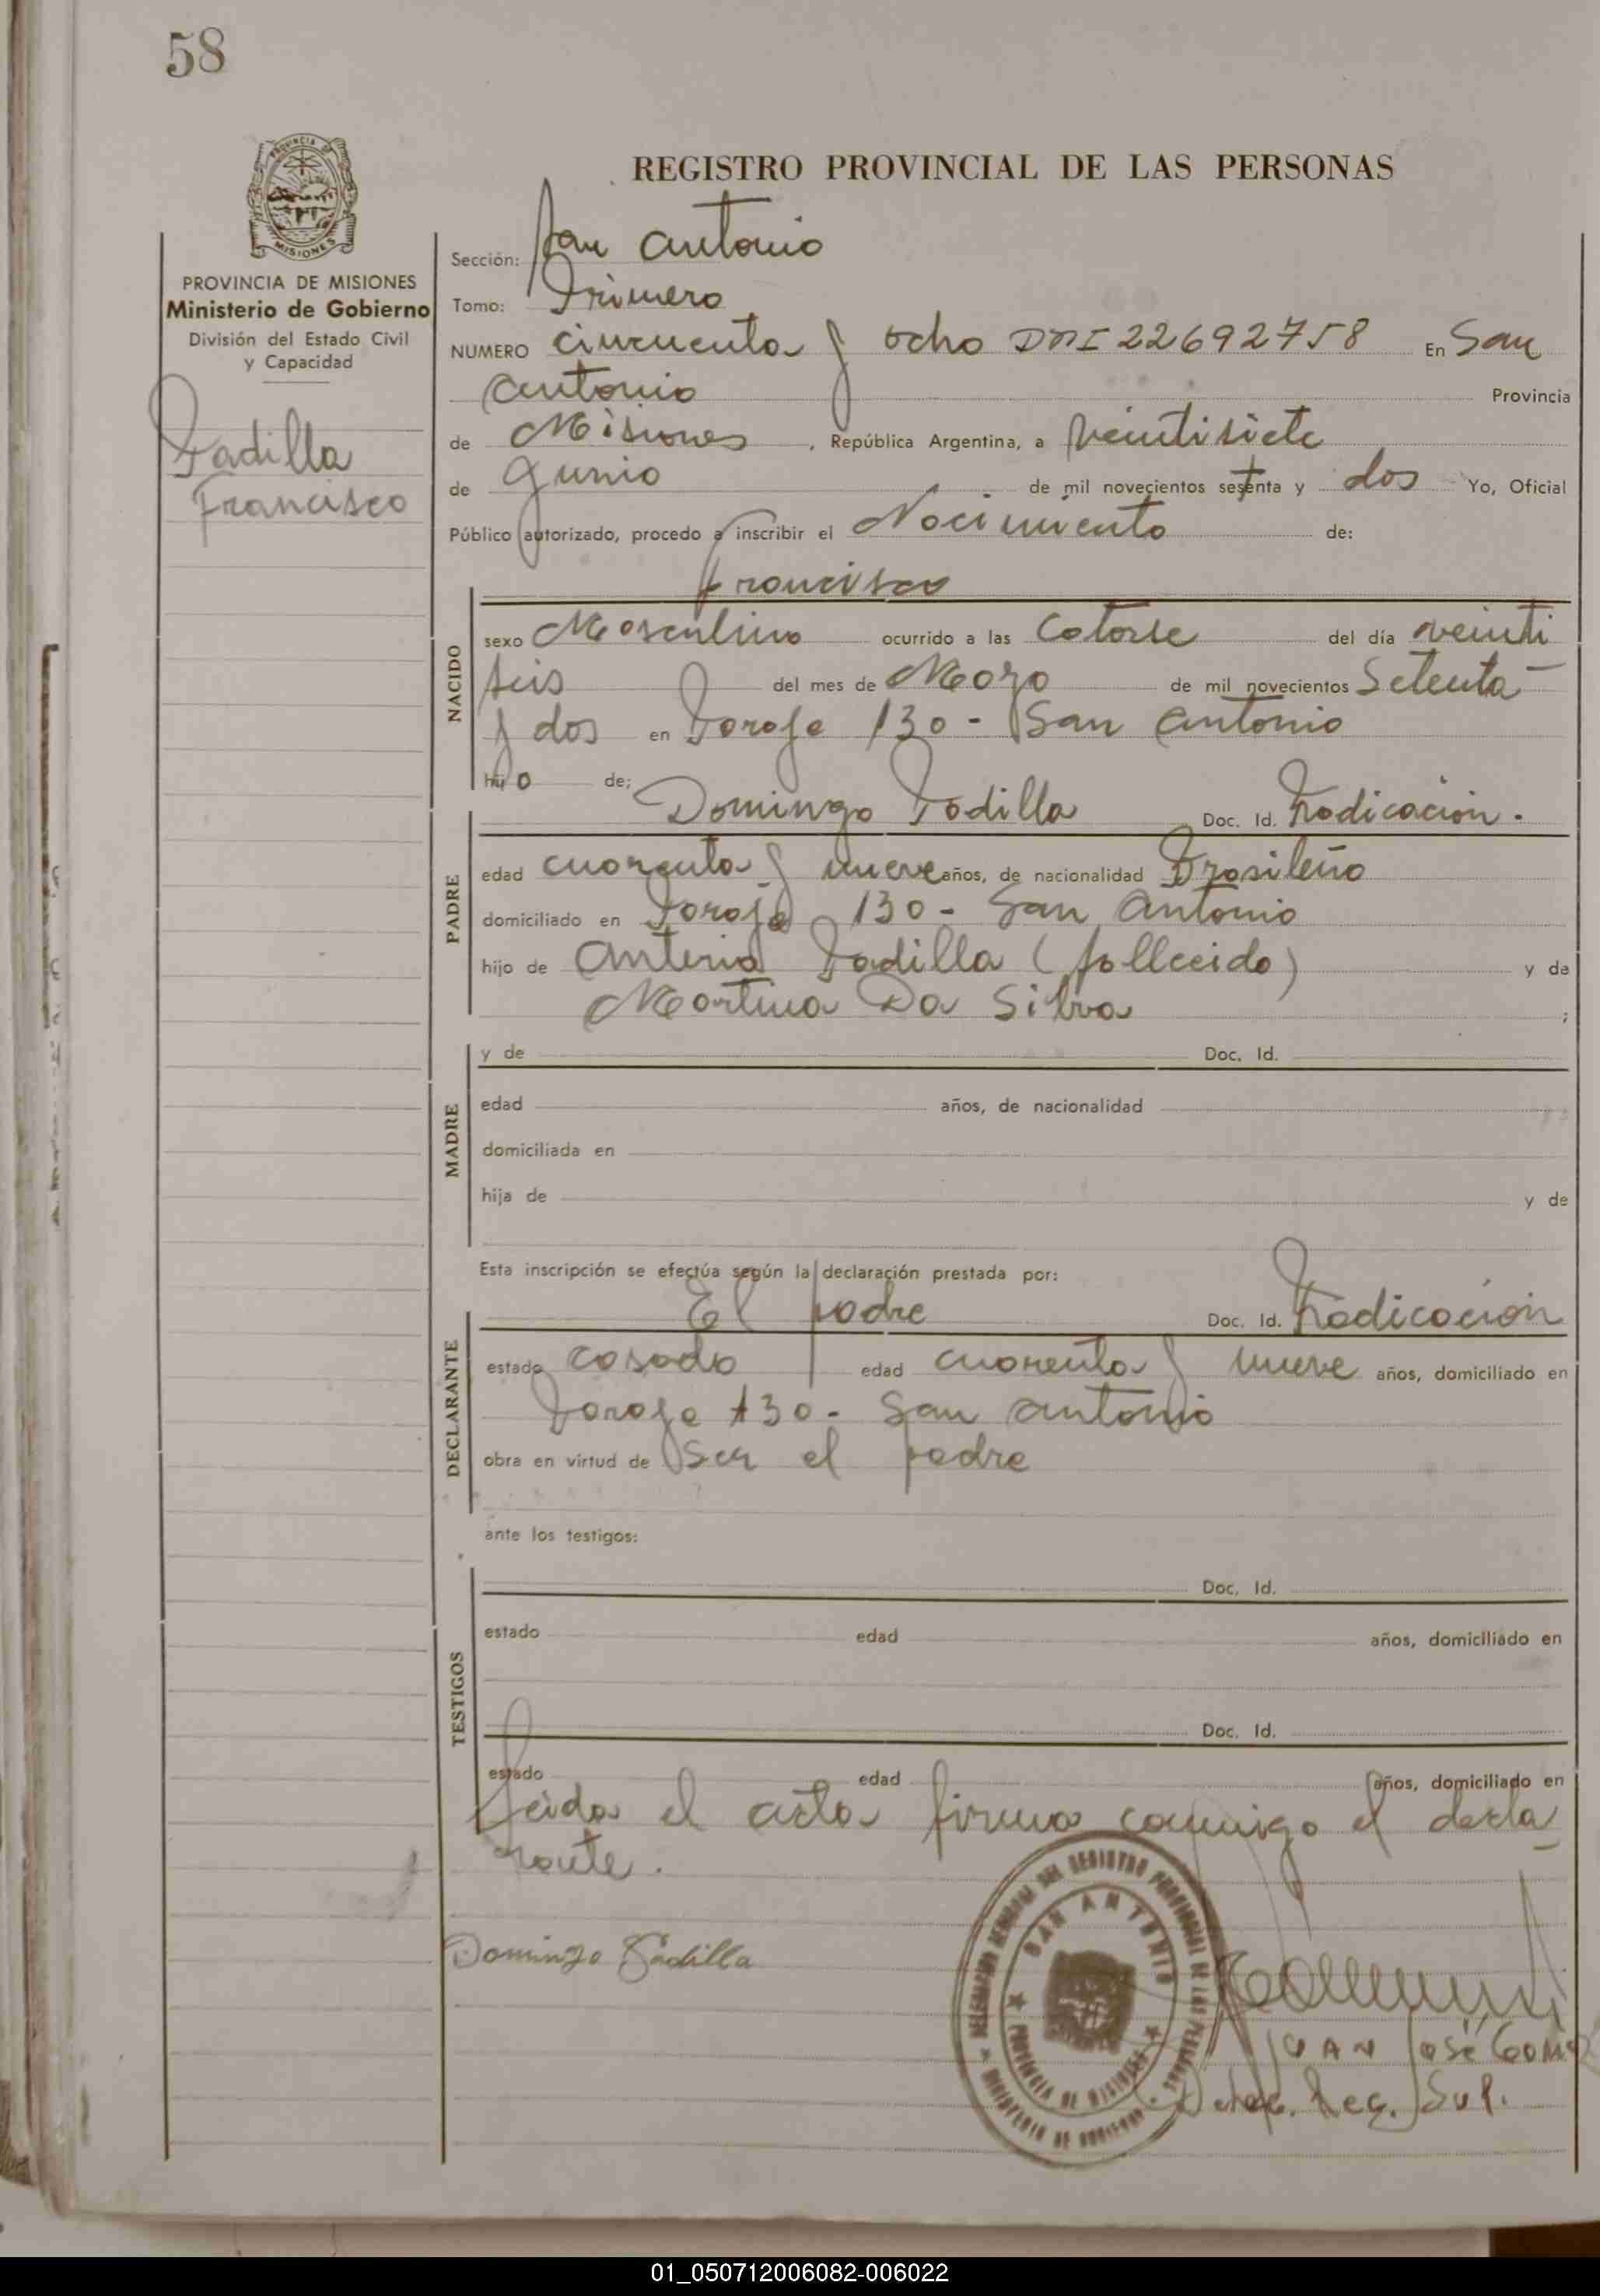 58
REGISTRO PROVINCIAL DE LAS PERSONAS
PROVINCIA DE MISIONES
Ministerio de Gobierno
División del Estado Civil
y Capacidad
Padilla
Francisco
Sección: San Antonio
Tomo: Primero
NUMERO cincuenta y ocho DNI 22692758 En San
Antonio Provincia
de Misiones , República Argentina, a veintisiete
de Junio de mil novecientos setenta y dos Yo, Oficial
Público autorizado, procedo a inscribir el Nacimiento de:
Francisco
NACIDO
sexo Masculino ocurrido a las Catorse del día veinti
seis del mes de Mayo de mil novecientos Setenta -
y dos en Paraje 130 - San Antonio
hijo de:
Domingo Padilla Doc. Id. Radicación.
PADRE
edad cuarenta y nueve años, de nacionalidad Brasileño
domiciliado en Paraje 130 - San Antonio
hijo de Anterio Padilla (fallecido) y de
Martina Da Silva ;
MADRE
y de Doc. Id.
edad años, de nacionalidad
domiciliada en
hija de y de
Esta inscripción se efectúa según la declaración prestada por:
El padre Doc. Id. Radicación
DECLARANTE
estado casado edad cuarenta y nueve años, domiciliado en
Paraje 130 - San Antonio
obra en virtud de Ser el padre
ante los testigos:
TESTIGOS
Doc. Id.
estado edad años, domiciliado en
Doc. Id.
estado edad años, domiciliado en
Leida el acta firma conmigo el decla
rante.
Domingo Padilla
SAN ANTONIO
PROVINCIA DE MISIONES
MINISTERIO DE GOBIERNO
JUAN José Gom
Deleg. Reg. Sup.
01_050712006082-006022